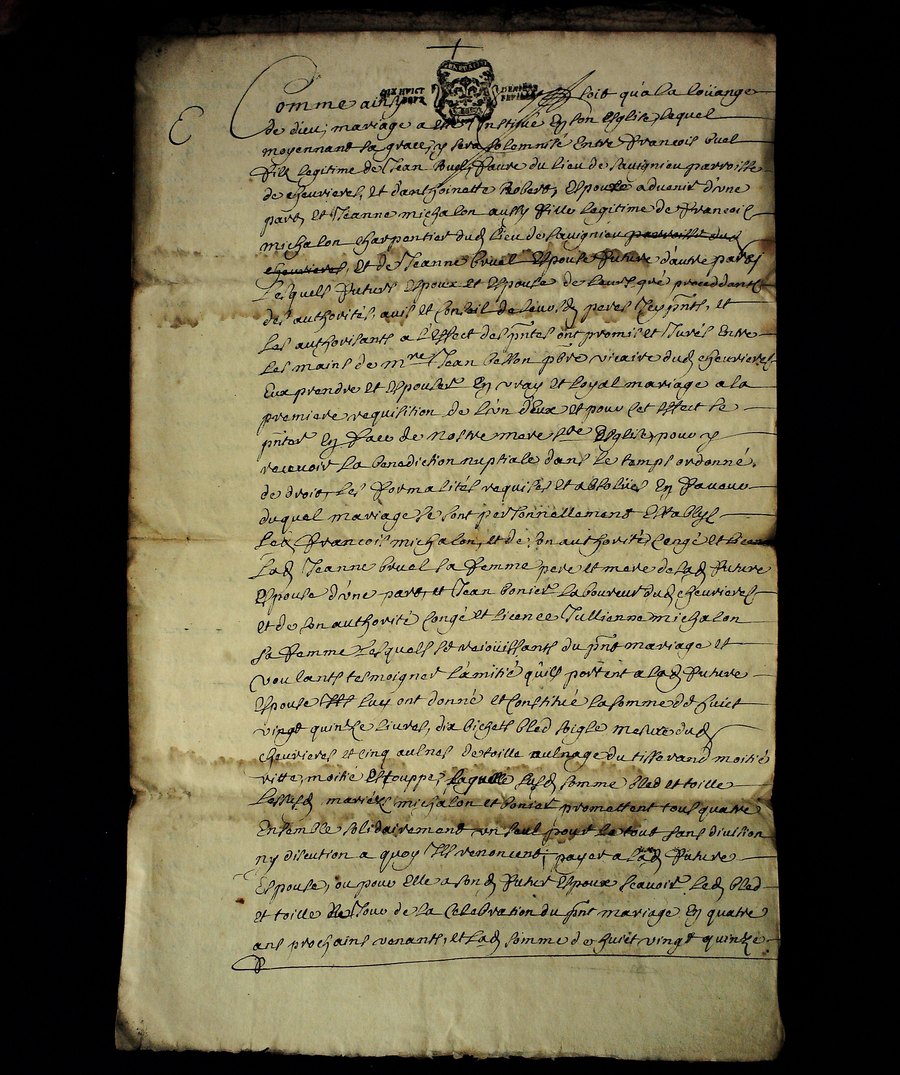 GENERALITE
DIX HUICT DENIERS
POUR FEUILLE
Comme ainsy soit qu'a la loüange
de dieu, mariage a esté Institué En son Esglise, lequel
moyennant sa grace, y sera solemnité Entre François bruel
fils legitime de Jean Bruel, faure du lieu de sauignieu parroisse
de cheurieres, et d'anthoinette Robert, Espoux aduenir d'vne
part, et Jeanne michalon aussy fille legitime de François
michalon charpentier dud lieu de sauignieu parroisse dud
cheurieres, et de Jeanne bruel Espouse future d'autre part,
Lesquels futurs Espoux et Espouse de leurs gré proceddants
des authorités, auis et Conseil de leursd peres Icy pnts, et
les authorisants a l'Effect des pntes ont promis et Jurés Entre
les mains de mre Jean besson pbre vicaire dud cheurieres
Eux prendre et Espouser En vray et loyal mariage a la
premiere requisition de l'vn d'Eux et pour Cet effect se
pnter En face de nostre mere ste Esglise, pour y
receuoir la benediction nuptiale dans le temps ordonné
de droit, les formalités requises et absolües En faueur
duquel mariage se sont personnellement Establys
Led François michalon, et de son authorité, Congé et licence
Lad Jeanne bruel sa femme pere et mere de lad future
Espouse d'vne part, et Jean bonier laboureur dud cheurieres
et de son authorité Congé et licence Jullienne michalon
sa femme Lesquels se rejoüissants du pnt mariage et
voulants tesmoigner l'amitié qu'ils portent a lad future
Espouse Ils luy ont donné et Constitué la somme de huict
vingt quinze liures, dix bichets bled soigle mesure dud
cheurieres et Cinq aulnes de toille aulnage du tisserand moitié
ritte, moitié Estouppe, laquelle susd somme bled et toille
Lessusd mariés michalon et bonier promettent tous quatre
Ensemble solidairement, vn seul pour le tout sans diuision
ny discution a quoy Ils renoncent, payer a lad future
Espouse, ou pour Elle a sond futur Espoux scauoir led bled
et toille du Jour de la Celebration du pnt mariage En quatre
ans prochains venants, et lad somme de huict vingt quinze